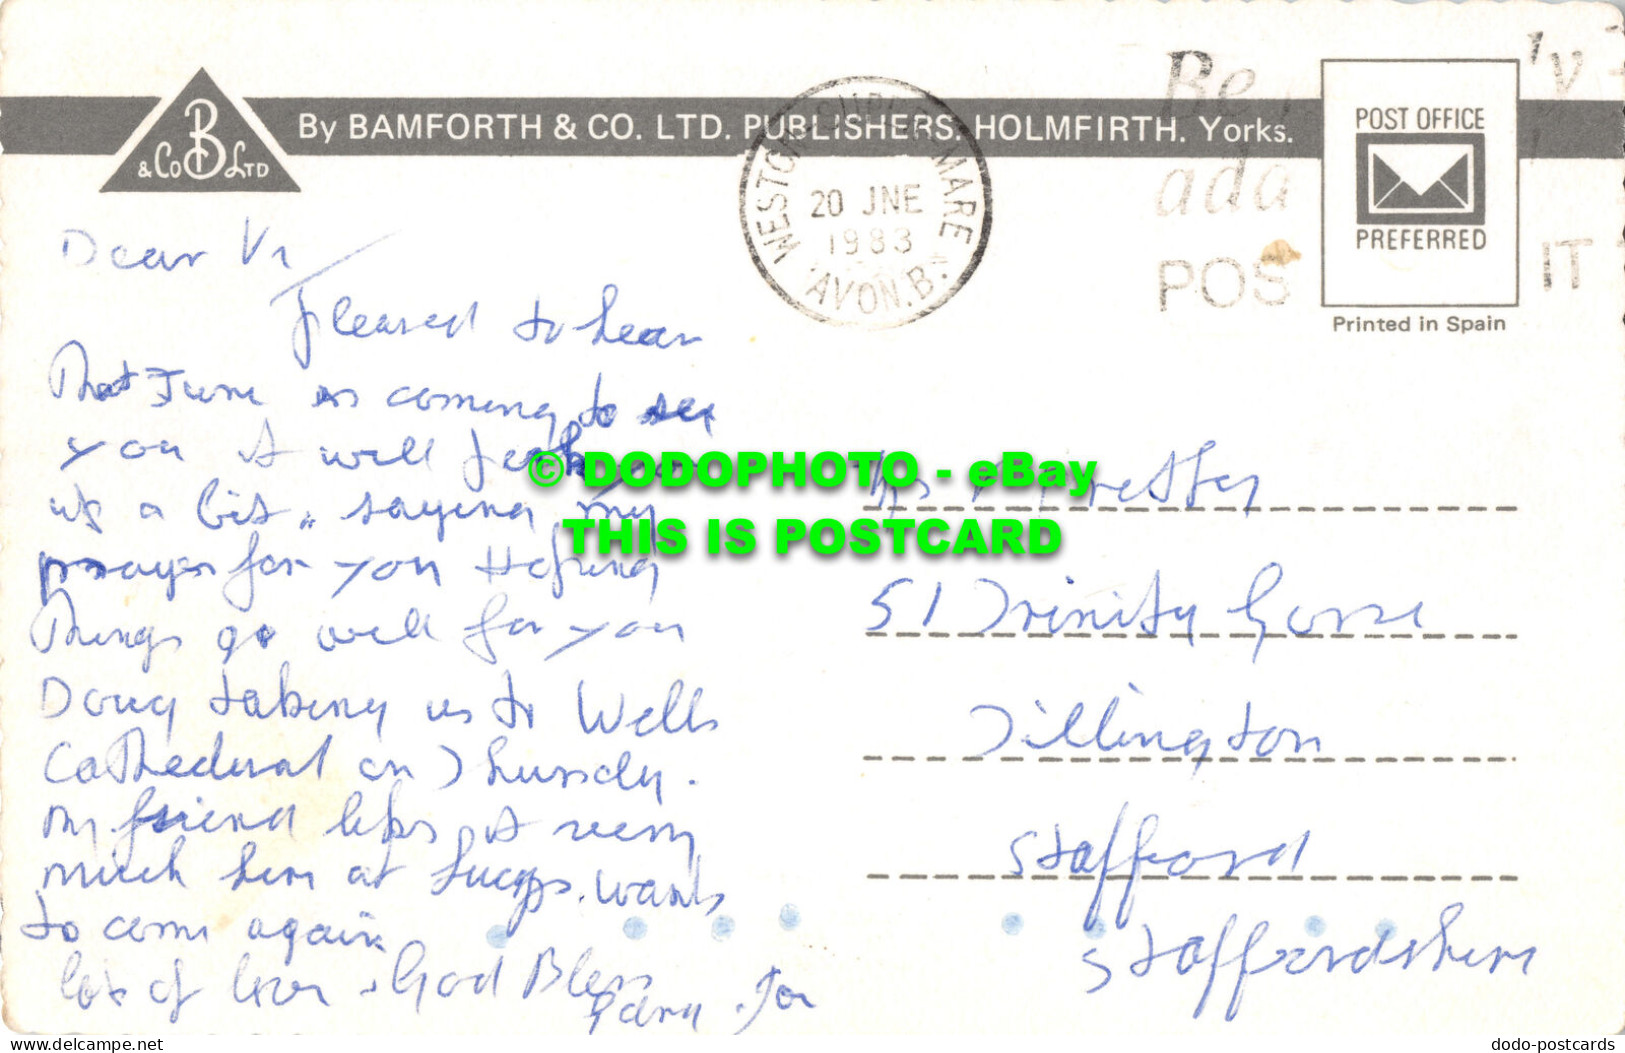 B
& Co LTD
By BAMFORTH & CO. LTD. PUBLISHERS. HOLMFIRTH. Yorks.
WESTON-SUPER-MARE
20 JNE
1983
AVON.B.
Be
ada
POS IT
POST OFFICE
PREFERRED
Printed in Spain
Dear Vi
Pleased to hear
That June is coming to see
you it will perk you
up a bit, saying my
prayer for you Hoping
Things go well for you
Doug taking us to Wells
Cathedral on Thursday.
My friend likes it very
much here at wants
to come again.
lots of love & God Bless
© DODOPHOTO - eBay
THIS IS POSTCARD
51 Trinity Gorse
Tillington
Stafford
Staffordshire
dodo-postcards
www.delcampe.net